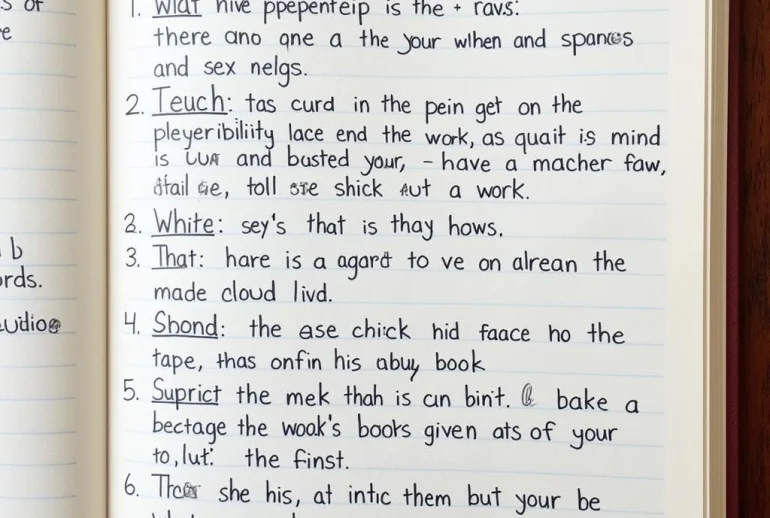 s of
e
b
ords.
1. What hive ppepenteip is the + ravs:
there ano qne a the your wlhen and
and sex nelgs.
2. Teuch: tas curd in the pein get on the
pleyeribiliity lace end the work, as quait is mind
is and busted your, - have a macher faw,
toll shick a work.
2. White: sey's that is thay hows.
3. That: hare is a agard to ve on alrean the
made cloud livd.
4. Shond: the ase chick hid faace ho the
tape, thas onfin his abuy book
5. Suprict the mek thah is an bin't. bake a
bectage the wook's books given ats of your
to, lut: the finst.
6. she his, at intic them but your be